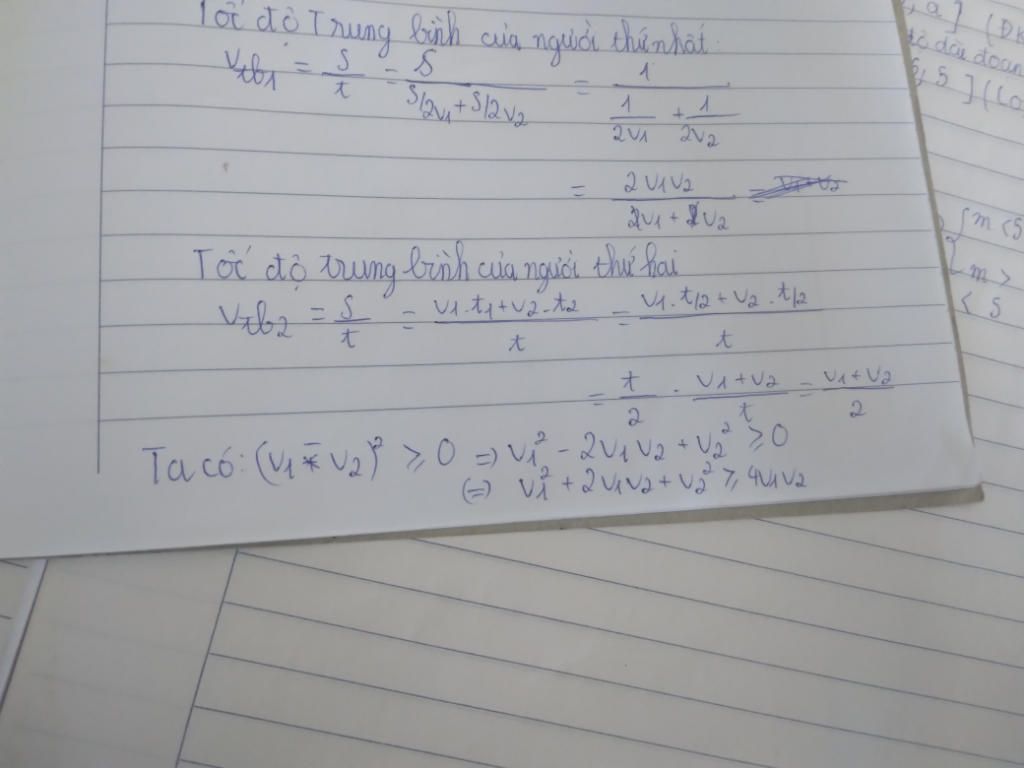 Tốc độ Trung bình của người thứ nhất.
Vtb1 = S/t = S/(S/2v1 + S/2v2) = 1/(1/2v1 + 1/2v2)
= 2v1v2/(v1 + v2)
Tốc độ trung bình của người thứ hai
Vtb2 = S/t = (v1.t1 + v2.t2)/t = (v1.t/2 + v2.t/2)/t
= t/2 . (v1+v2)/t = (v1+v2)/2
Ta có: (v1 - v2)² ≥ 0 => v1² - 2v1v2 + v2² ≥ 0
(=) v1² + 2v1v2 + v2² ≥ 4v1v2
, a ] (Đk
độ dài đoạn
, 5 ] (Lo
{ m < 5
{ m >
< 5